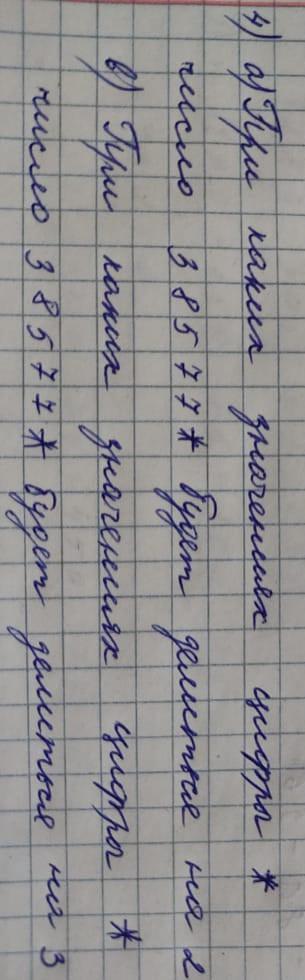 4) а) При каких значениях цифры *
число 38577* будет делиться на 2
в) При каких значениях цифры *
число 38577* будет делиться на 3